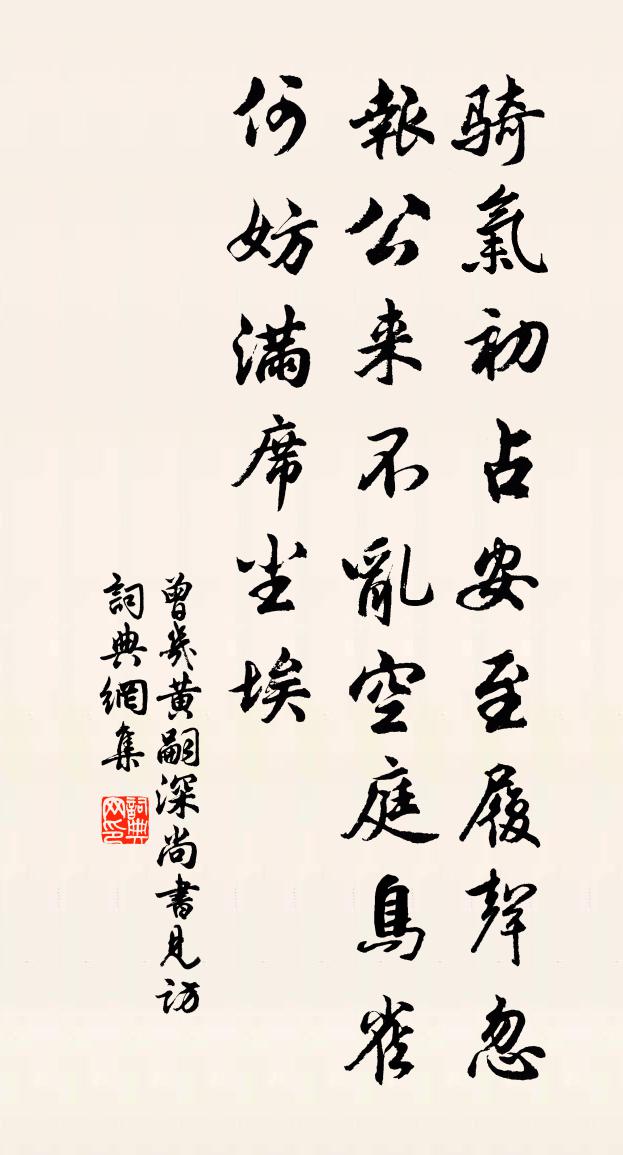 騎氣初占安至履聲忽
報公来不亂空庭鳥雀
何妨滿席尘埃
曾幾黄嗣深尚書見访
詞典網集
詞典网印